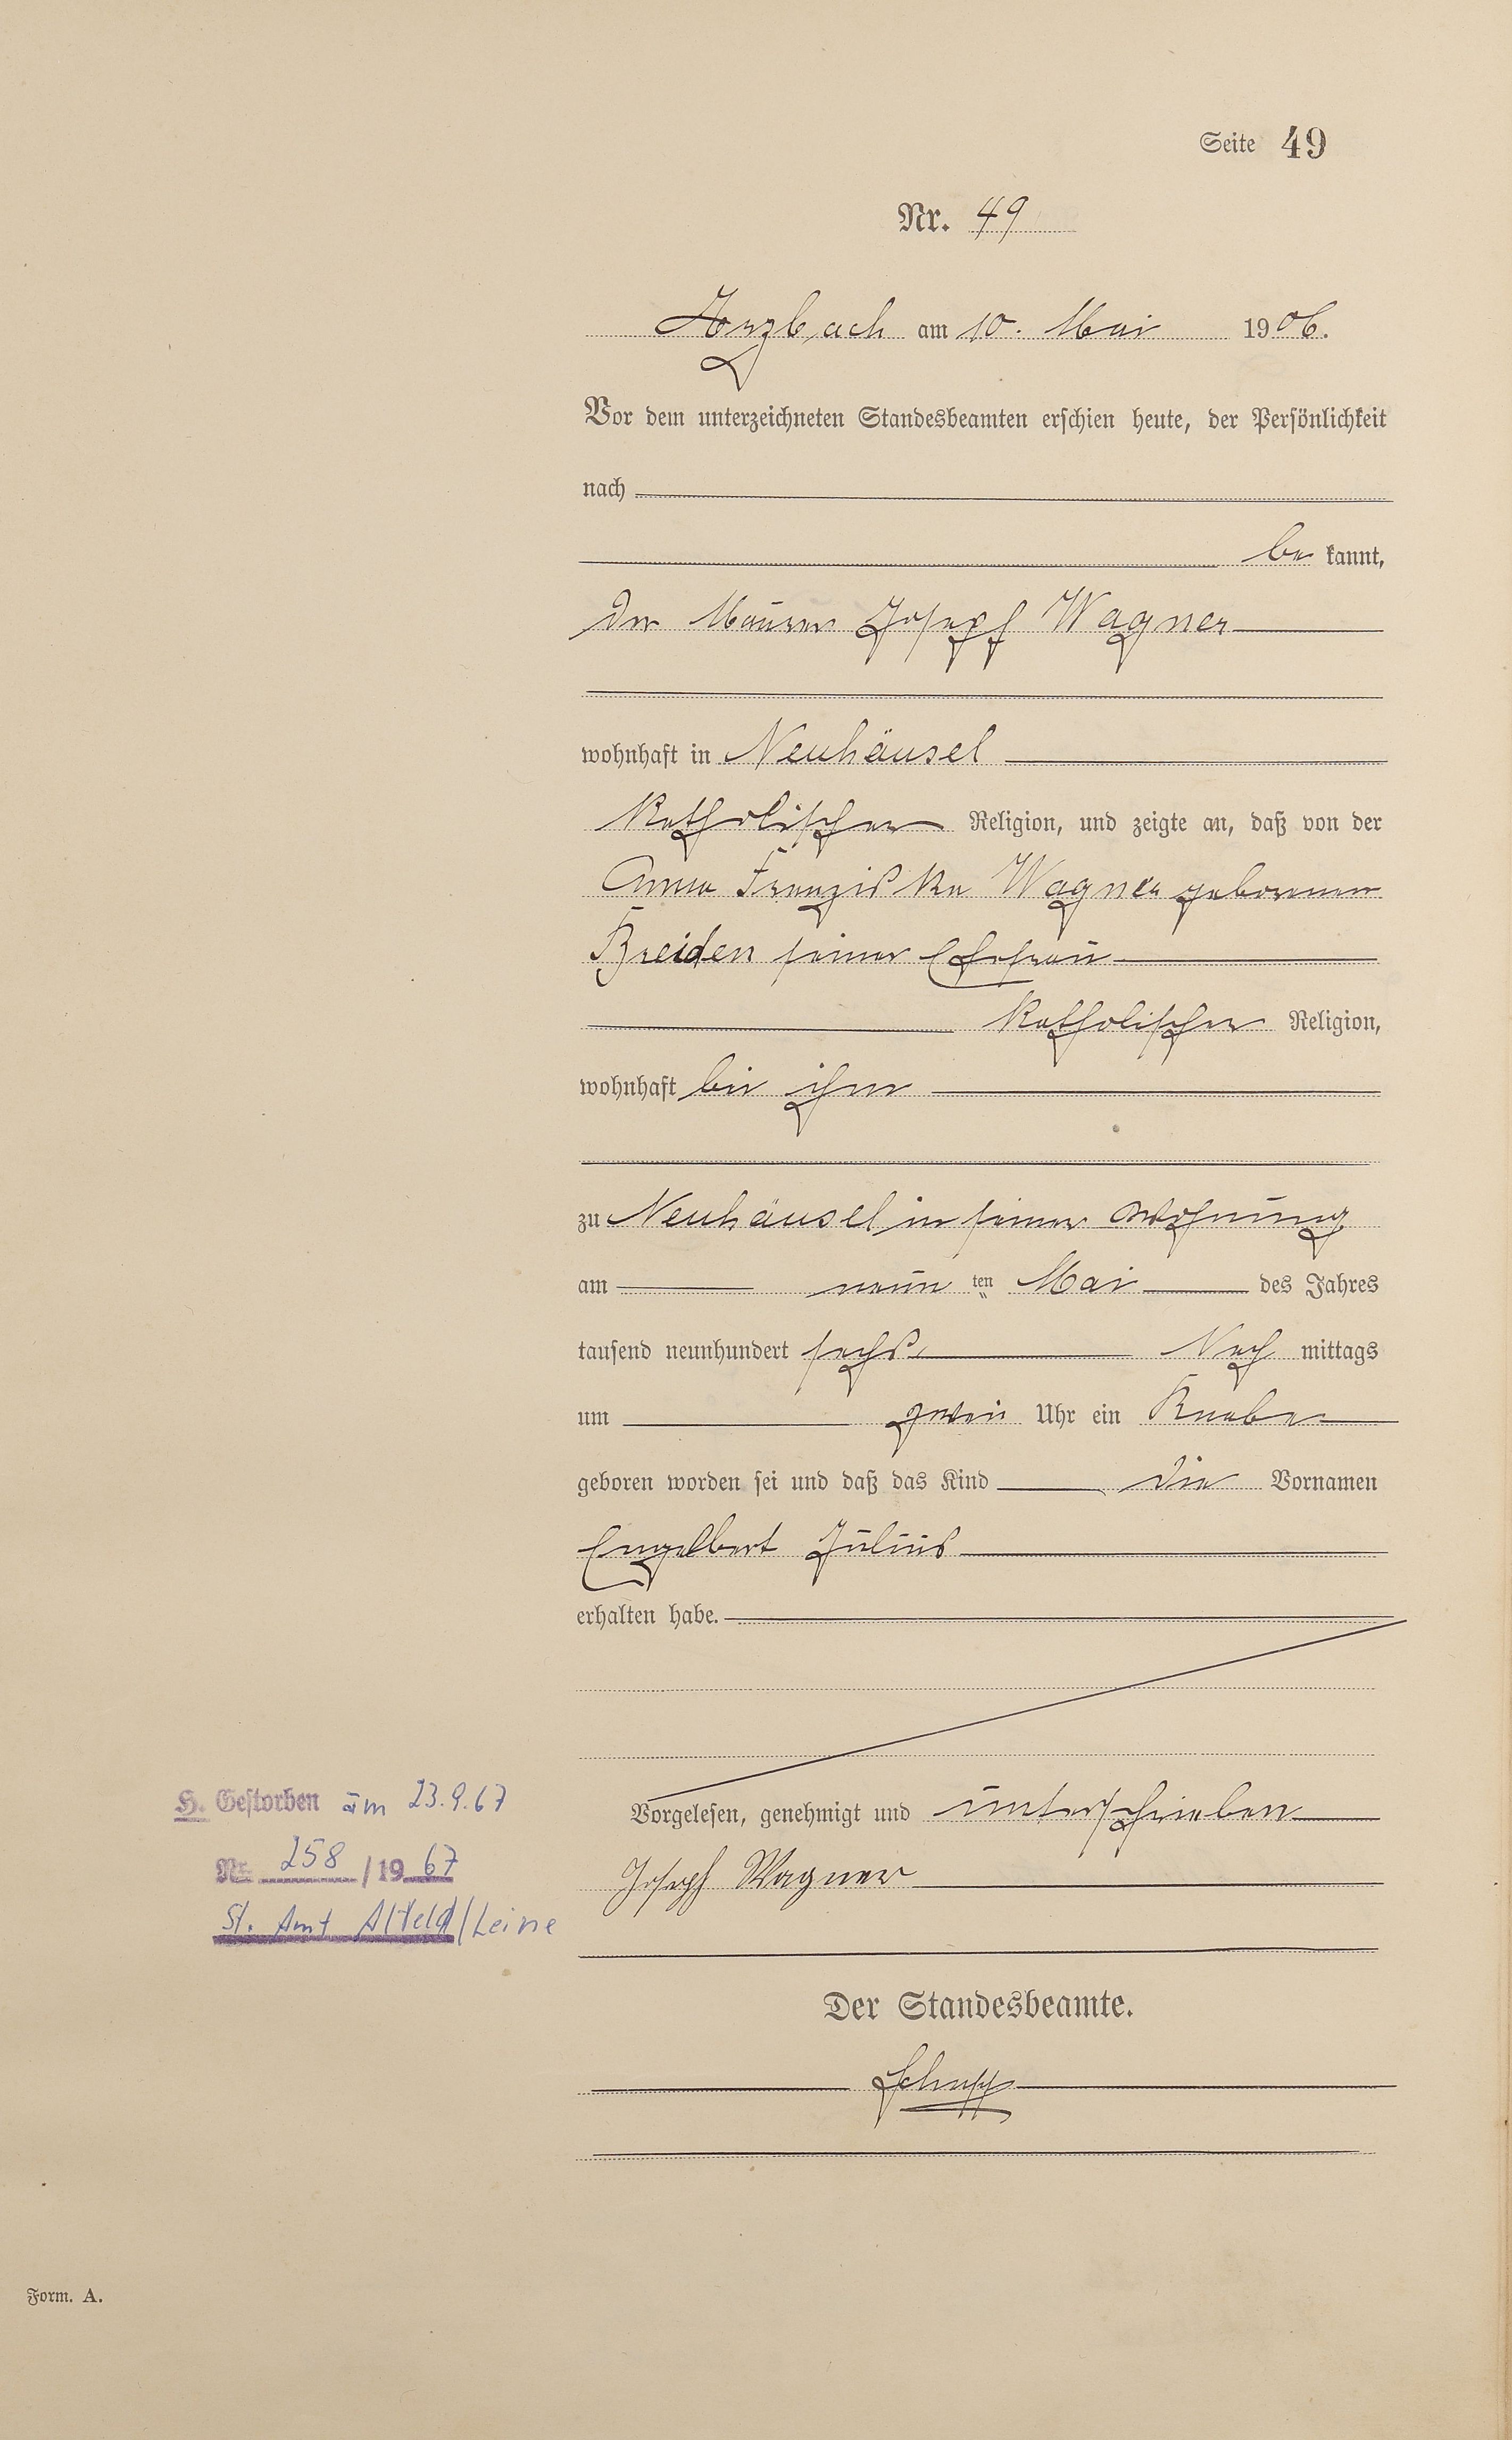 Seite 49
Nr. 49
Arzbach am 10. Mai 1906.
Vor dem unterzeichneten Standesbeamten erschien heute, der Persönlichkeit
nach
be kannt,
der Maurer Josepf Wagner
wohnhaft in Neuhäusel
katholischer Religion, und zeigte an, daß von der
Anna Franziska Wagner geborenen
Breiden seiner Ehefrau
katholischer Religion,
wohnhaft bei ihm
zu Neuhäusel in seiner Wohnung
am neun ten Mai des Jahres
tausend neunhundert sechs, Nach mittags
um zwei Uhr ein Knabe
geboren worden sei und daß das Kind die Vornamen
Engelbert Julius
erhalten habe.
Vorgelesen, genehmigt und unterschrieben
Joseph Wagner
Der Standesbeamte.
Schupp
H. Gestorben am 23.9.67
Nr. 258 / 19 67
St. Amt Alfeld/Leine
Form. A.